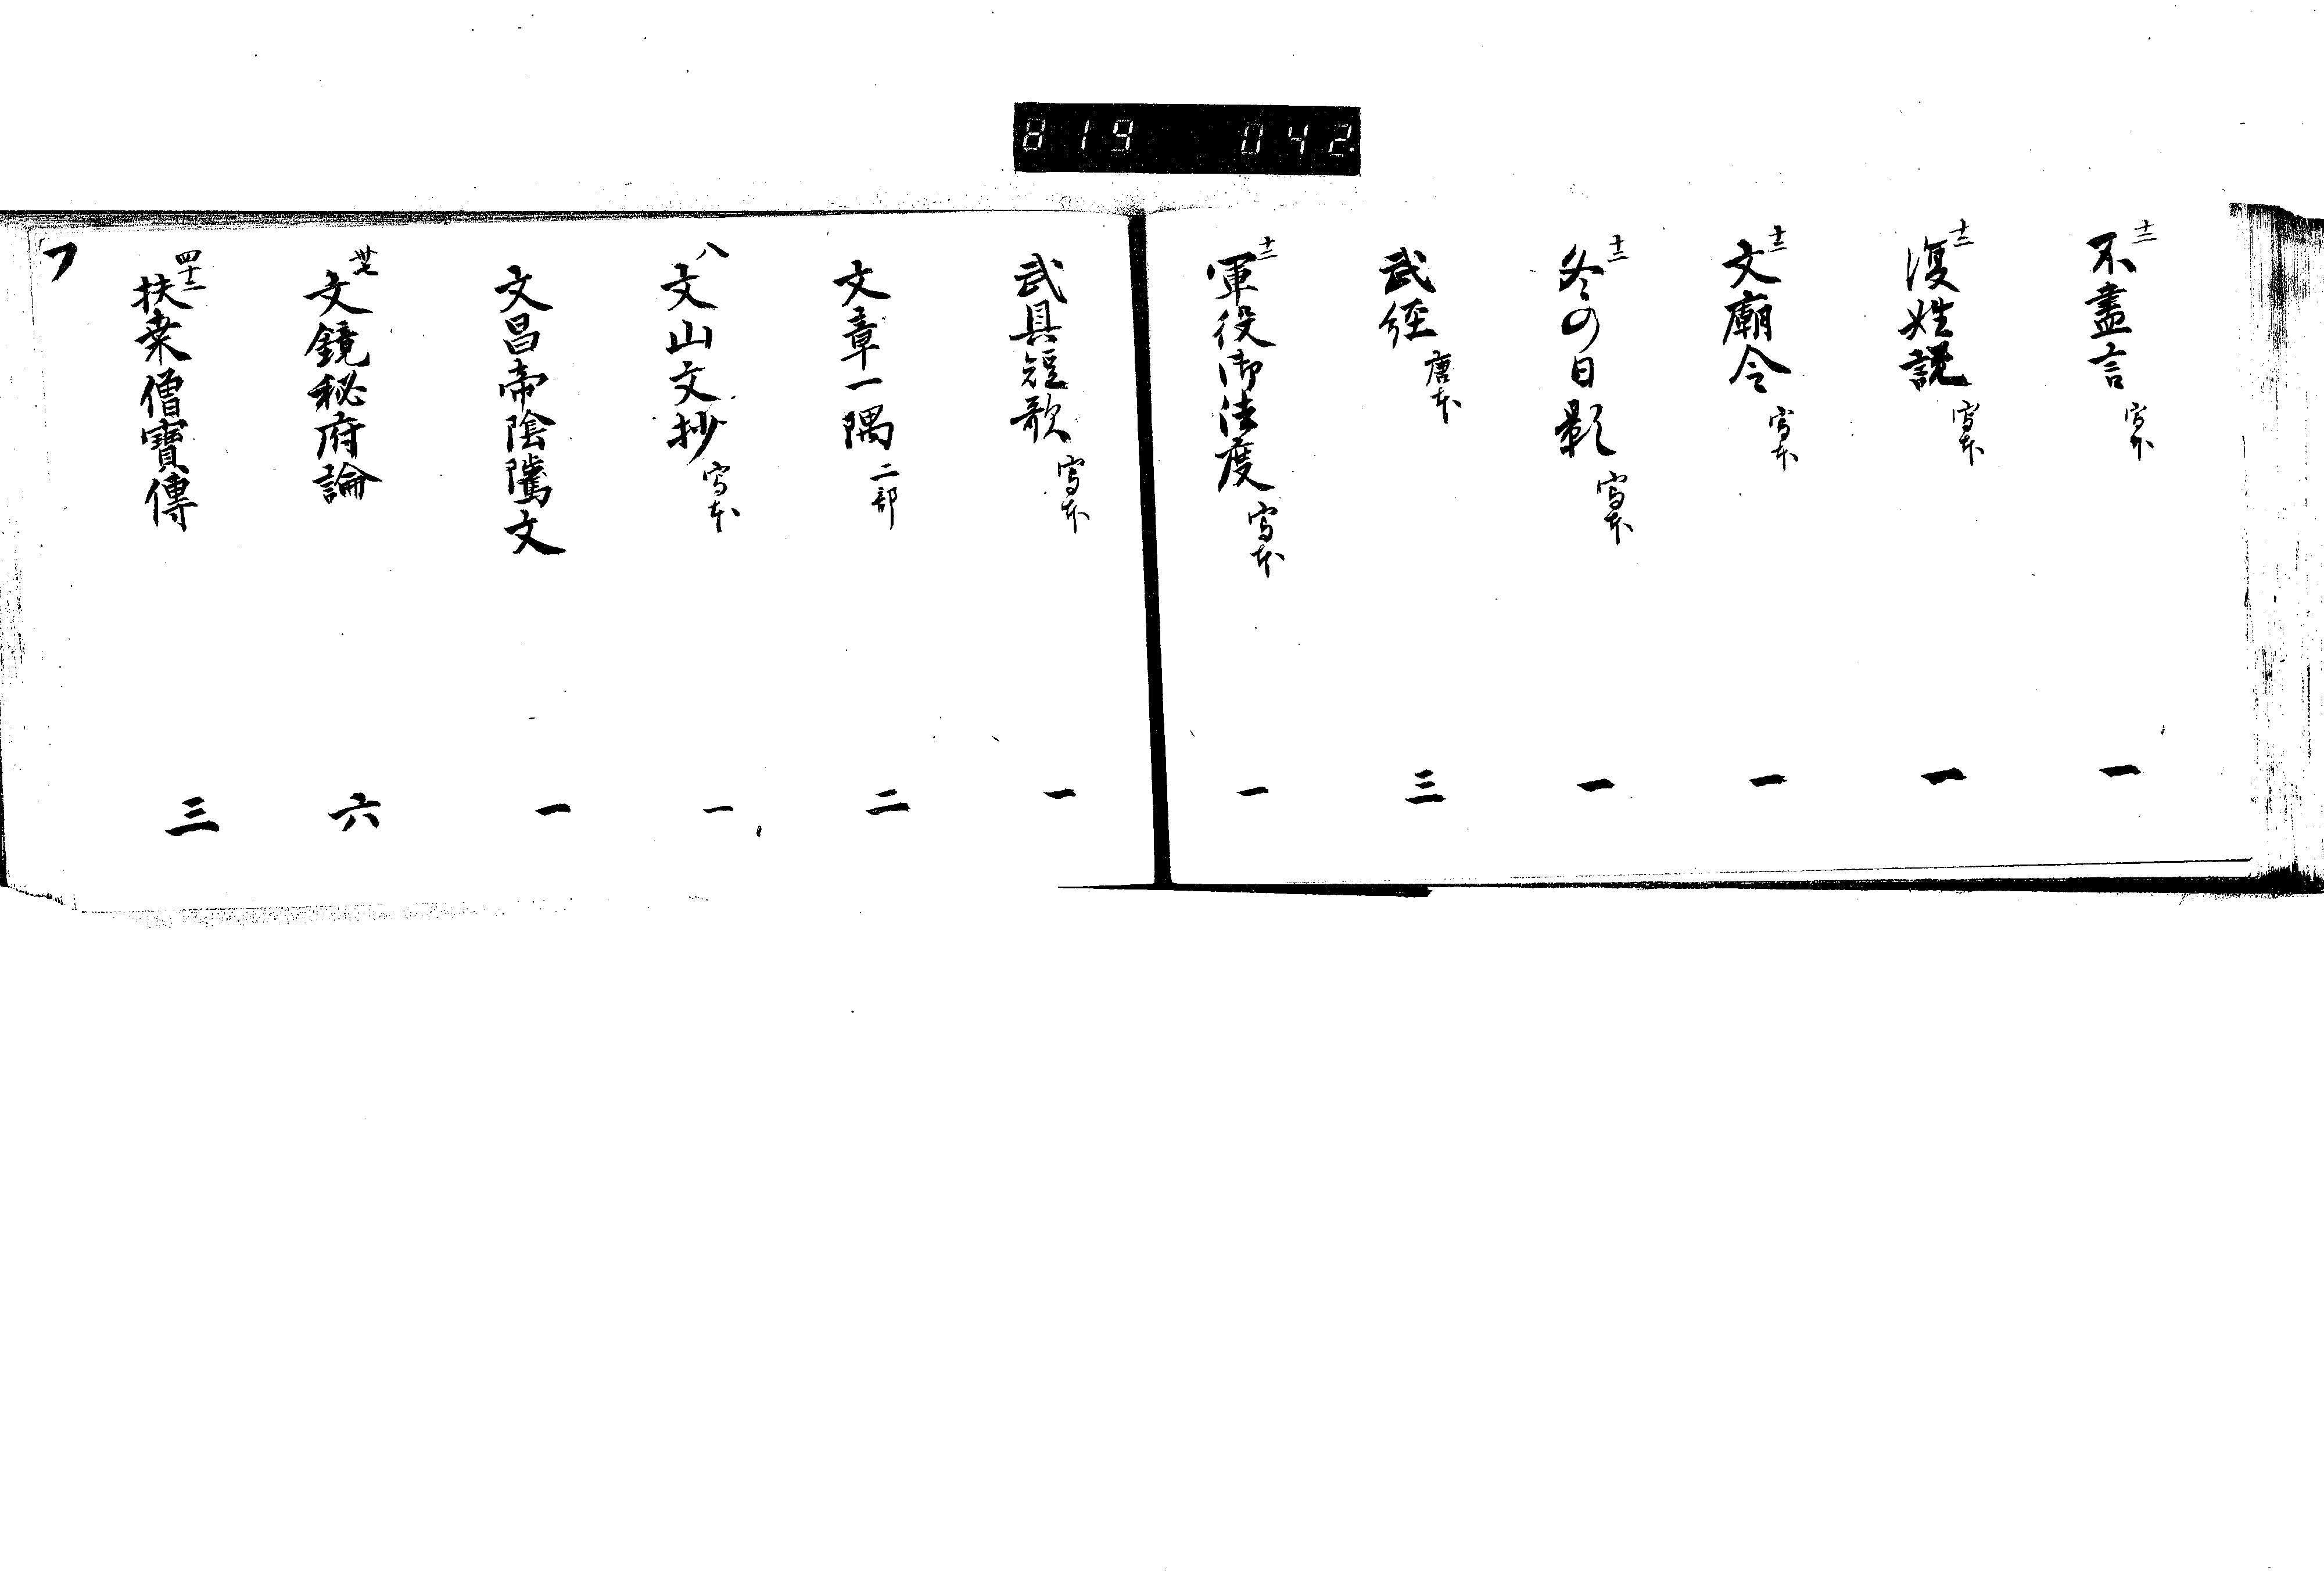 819 042
十二 不盡言 写本 一
十二 復姓説 写本 一
十二 文廟令 写本 一
十二 冬の日影 写本 一
武経 唐本 三
十二 軍役御法度 写本 一
武具短歌 写本 一
文章一隅 二部 二
八 文山文抄 写本 一
文昌帝陰隲文 一
丗七 文鏡秘府論 六
四十二 扶桒僧寶傳 三
フ